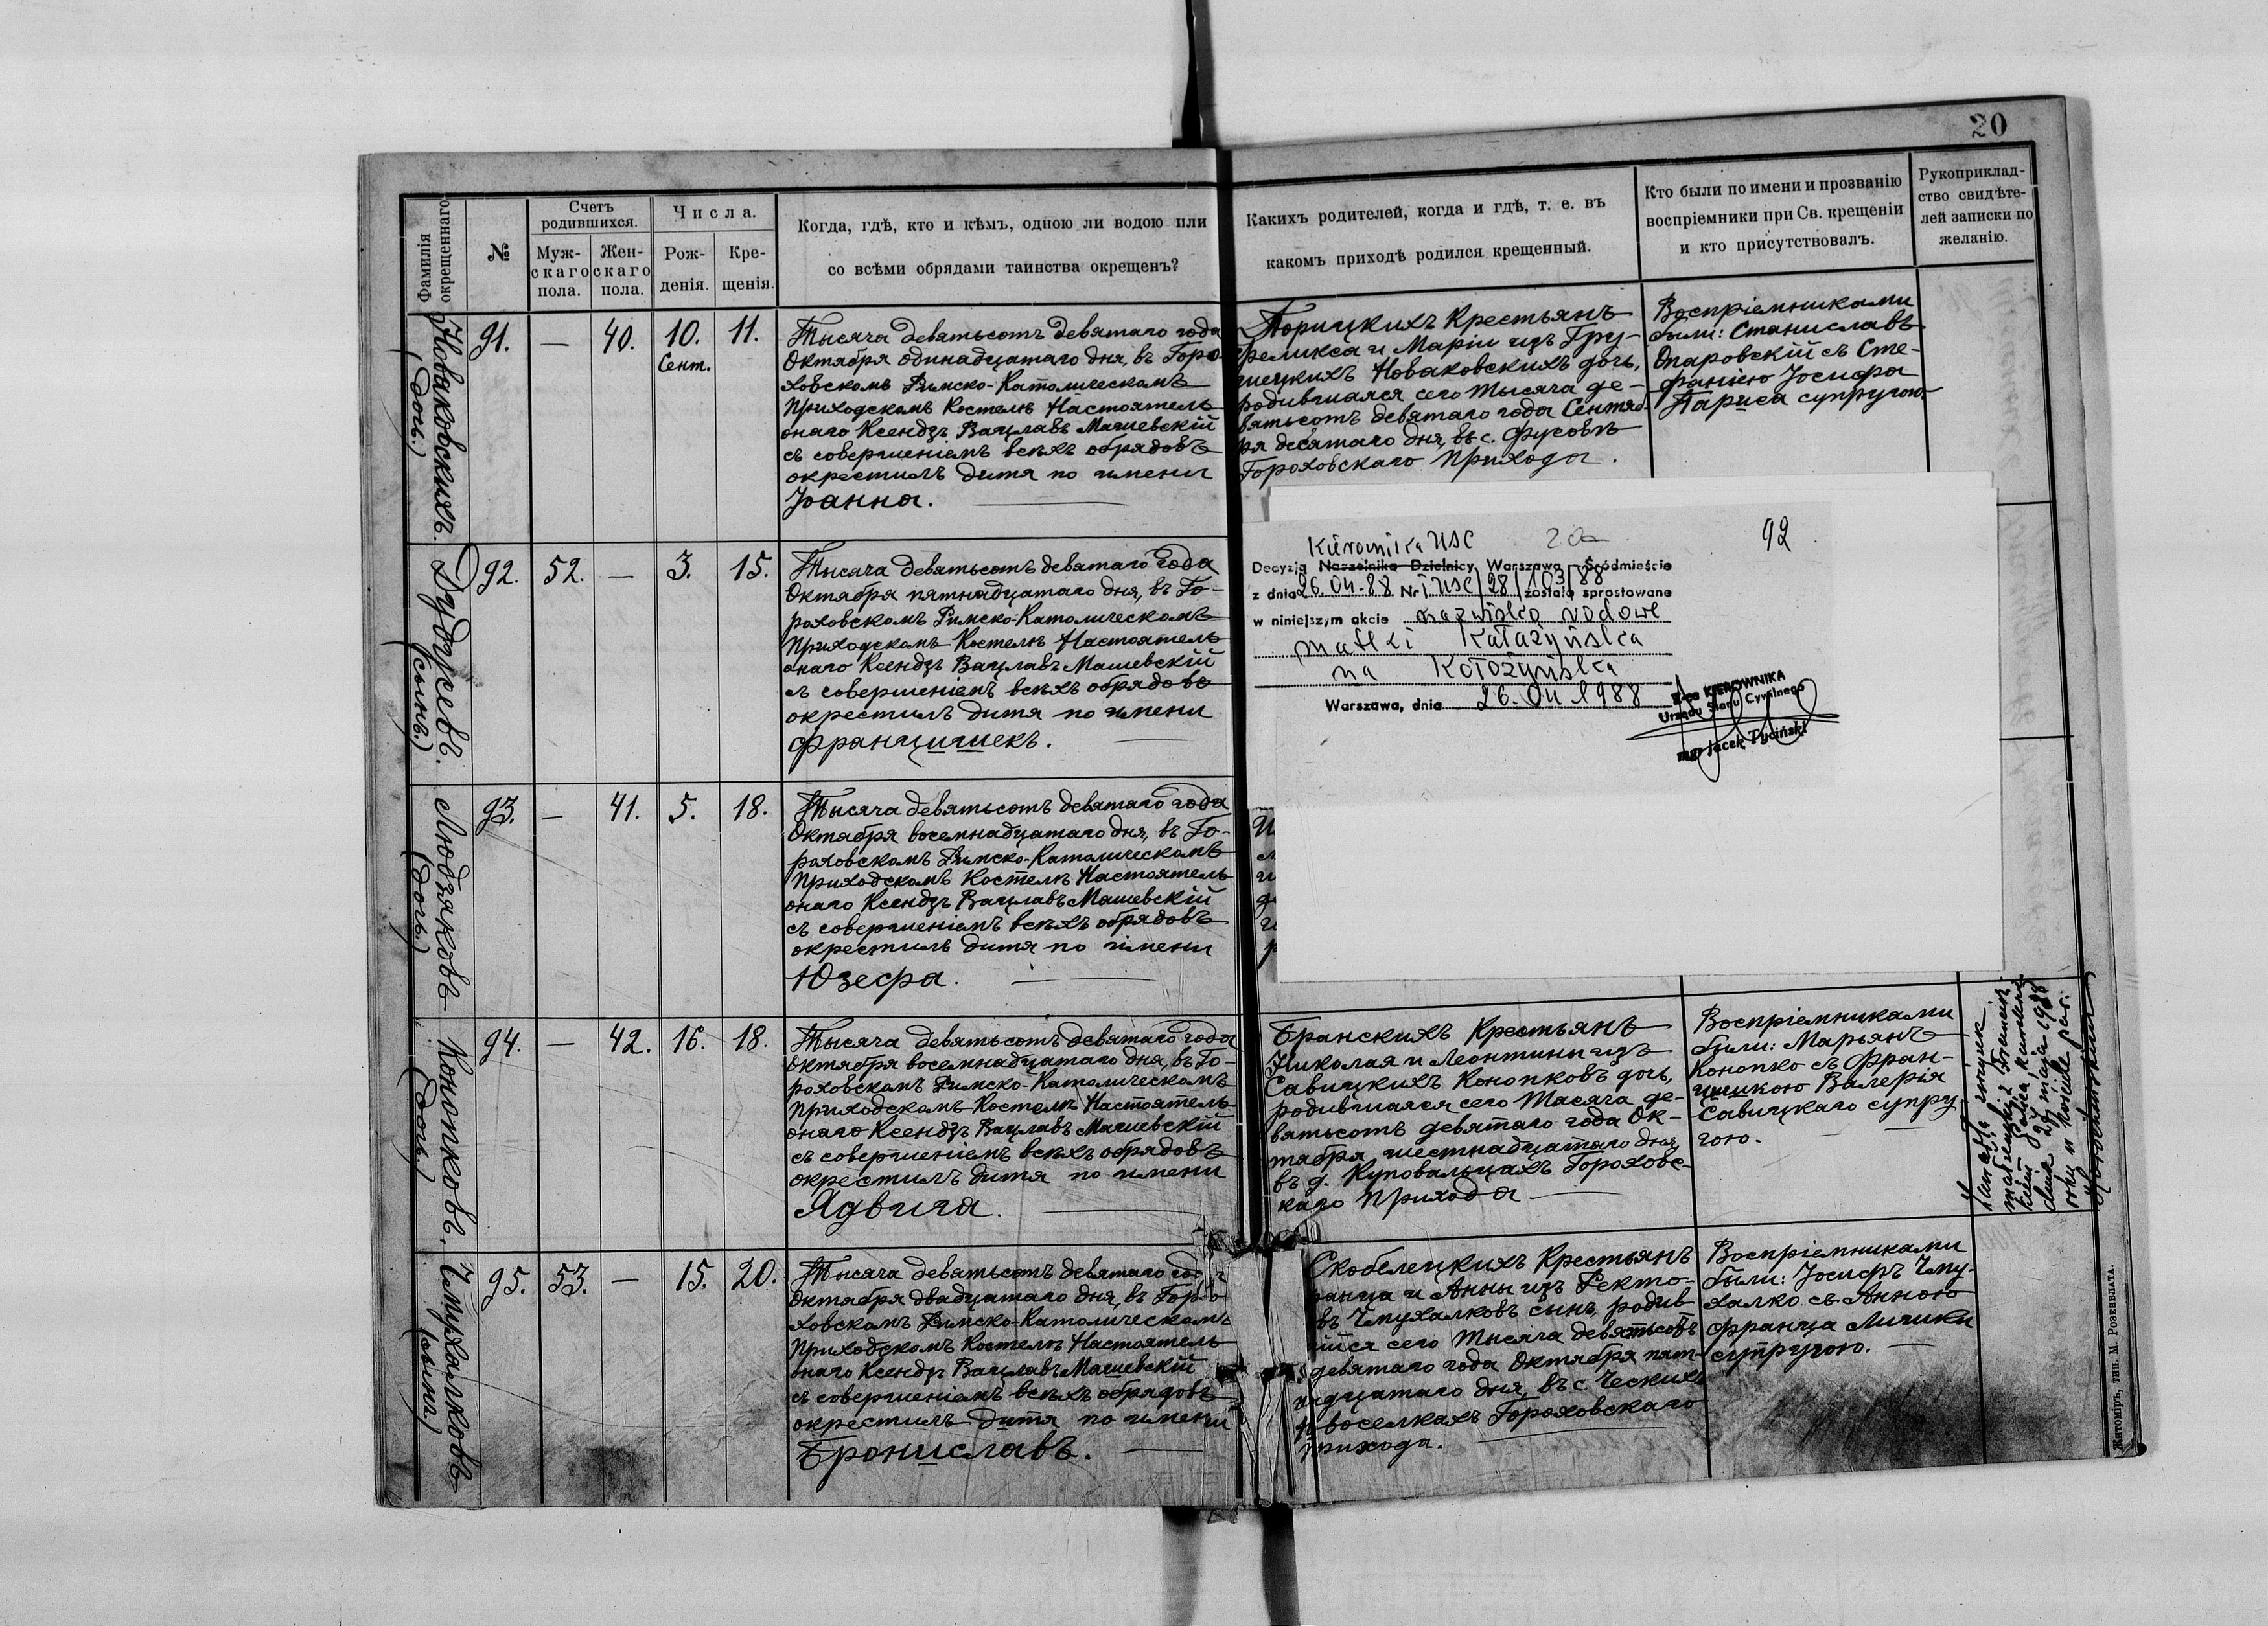 20
Фамилія окрещеннаго
№
Счетъ родившихся.
Мужскаго пола.
Женскаго пола.
Числа.
Рожденія.
Крещенія.
Когда, гдѣ, кто и кѣмъ, одною ли водою или
со всѣми обрядами таинства окрещенъ?
Какихъ родителей, когда и гдѣ, т. е. въ
какомъ приходѣ родился крещенный.
Кто были по имени и прозванію
воспріемники при Св. крещеніи
и кто присутствовалъ.
Рукоприклад-
ство свидѣте-
лей записки по
желанію.
Новаковскихъ.
(дочь.)
91. — 40. 10. 11.
Сент.
Тысяча девятьсотъ девятаго года
Октября одинадцатаго дня, въ Горо-
ховскомъ Римско-Католическомъ
Приходскомъ Костелѣ Настоятель
онаго Ксендзъ Вацлавъ Машевскій
съ совершеніемъ всѣхъ обрядовъ
окрестилъ дитя по имени
Іоанна.
Торицкихъ Крестьянъ
Феликса и Маріи изъ Гру-
шецкихъ Новаковскихъ дочь,
родившаяся сего Тысяча де-
вятьсотъ девятаго года Сентяб-
ря десятаго дня, въ с. Фусовѣ
Гороховскаго Прихода.
Воспріемниками
были: Станиславъ
Опаровскій съ Сте-
фаніею Іосифа
Париса супругою
Дудусевъ.
(сынъ.)
92. 52. — 3. 15.
Тысяча девятьсотъ девятаго года
Октября пятнадцатаго дня, въ Го-
роховскомъ Римско-Католическомъ
Приходскомъ Костелѣ Настоятель
онаго Ксендзъ Вацлавъ Машевскій
съ совершеніемъ всѣхъ обрядовъ
окрестилъ дитя по имени
Францишекъ.
92
Kierownika USC
Decyzją Naczelnika Dzielnicy Warszawa Śródmieście
z dnia 26.04.88 Nr I USC/28/103/88 została sprostowane
w niniejszym akcie nazwisko rodowe
matki Katażyńska
na Kołożyńska
Warszawa, dnia 26.04.1988
Z-ca KIEROWNIKA
Urzędu Stanu Cywilnego
mgr Jacek Tyciński
Людзяковъ
(дочь.)
93. — 41. 5. 18.
Тысяча девятьсотъ девятаго года
Октября восемнадцатаго дня, въ Го-
роховскомъ Римско-Католическомъ
Приходскомъ Костелѣ Настоятель
онаго Ксендзъ Вацлавъ Машевскій
съ совершеніемъ всѣхъ обрядовъ
окрестилъ дитя по имени
Юзефа.
Конопковъ.
(дочь.)
94. — 42. 16. 18.
Тысяча девятьсотъ девятаго года
Октября восемнадцатаго дня, въ Го-
роховскомъ Римско-Католическомъ
Приходскомъ Костелѣ Настоятель
онаго Ксендзъ Вацлавъ Машевскій
съ совершеніемъ всѣхъ обрядовъ
окрестилъ дитя по имени
Ядвига.
Бранскихъ Крестьянъ
Николая и Леонтины изъ
Савицкихъ Конопковъ дочь,
родившаяся сего Тысяча де-
вятьсотъ девятаго года Ок-
тября шестнадцатаго дня,
въ д. Куповальцахъ Гороховс-
каго Прихода
Воспріемниками
были: Марьянъ
Конопко съ Фран-
цишкою Валерія
Савицкаго супру
гою.
Чмухалковъ
(сынъ.)
95. 53. — 15. 20.
Тысяча девятьсотъ девятаго года
Октября двадцатаго дня, въ Горо
ховскомъ Римско-Католическомъ
Приходскомъ Костелѣ Настоятель
онаго Ксендзъ Вацлавъ Машевскій
съ совершеніемъ всѣхъ обрядовъ
окрестилъ дитя по имени
Брониславъ.
Скобелецкихъ Крестьянъ
Франца и Анны изъ Ректо-
въ Чмухалковъ сынъ, родив
шійся сего Тысяча девятьсотъ
девятаго года Октября пят-
надцатаго дня, въ с. Ческихъ
Новоселкахъ Гороховскаго
Прихода.
Воспріемниками
были: Іосифъ Чму-
халко съ Анною
Франца Личики
супругою.
Житоміръ, тип. М. Розенблата.